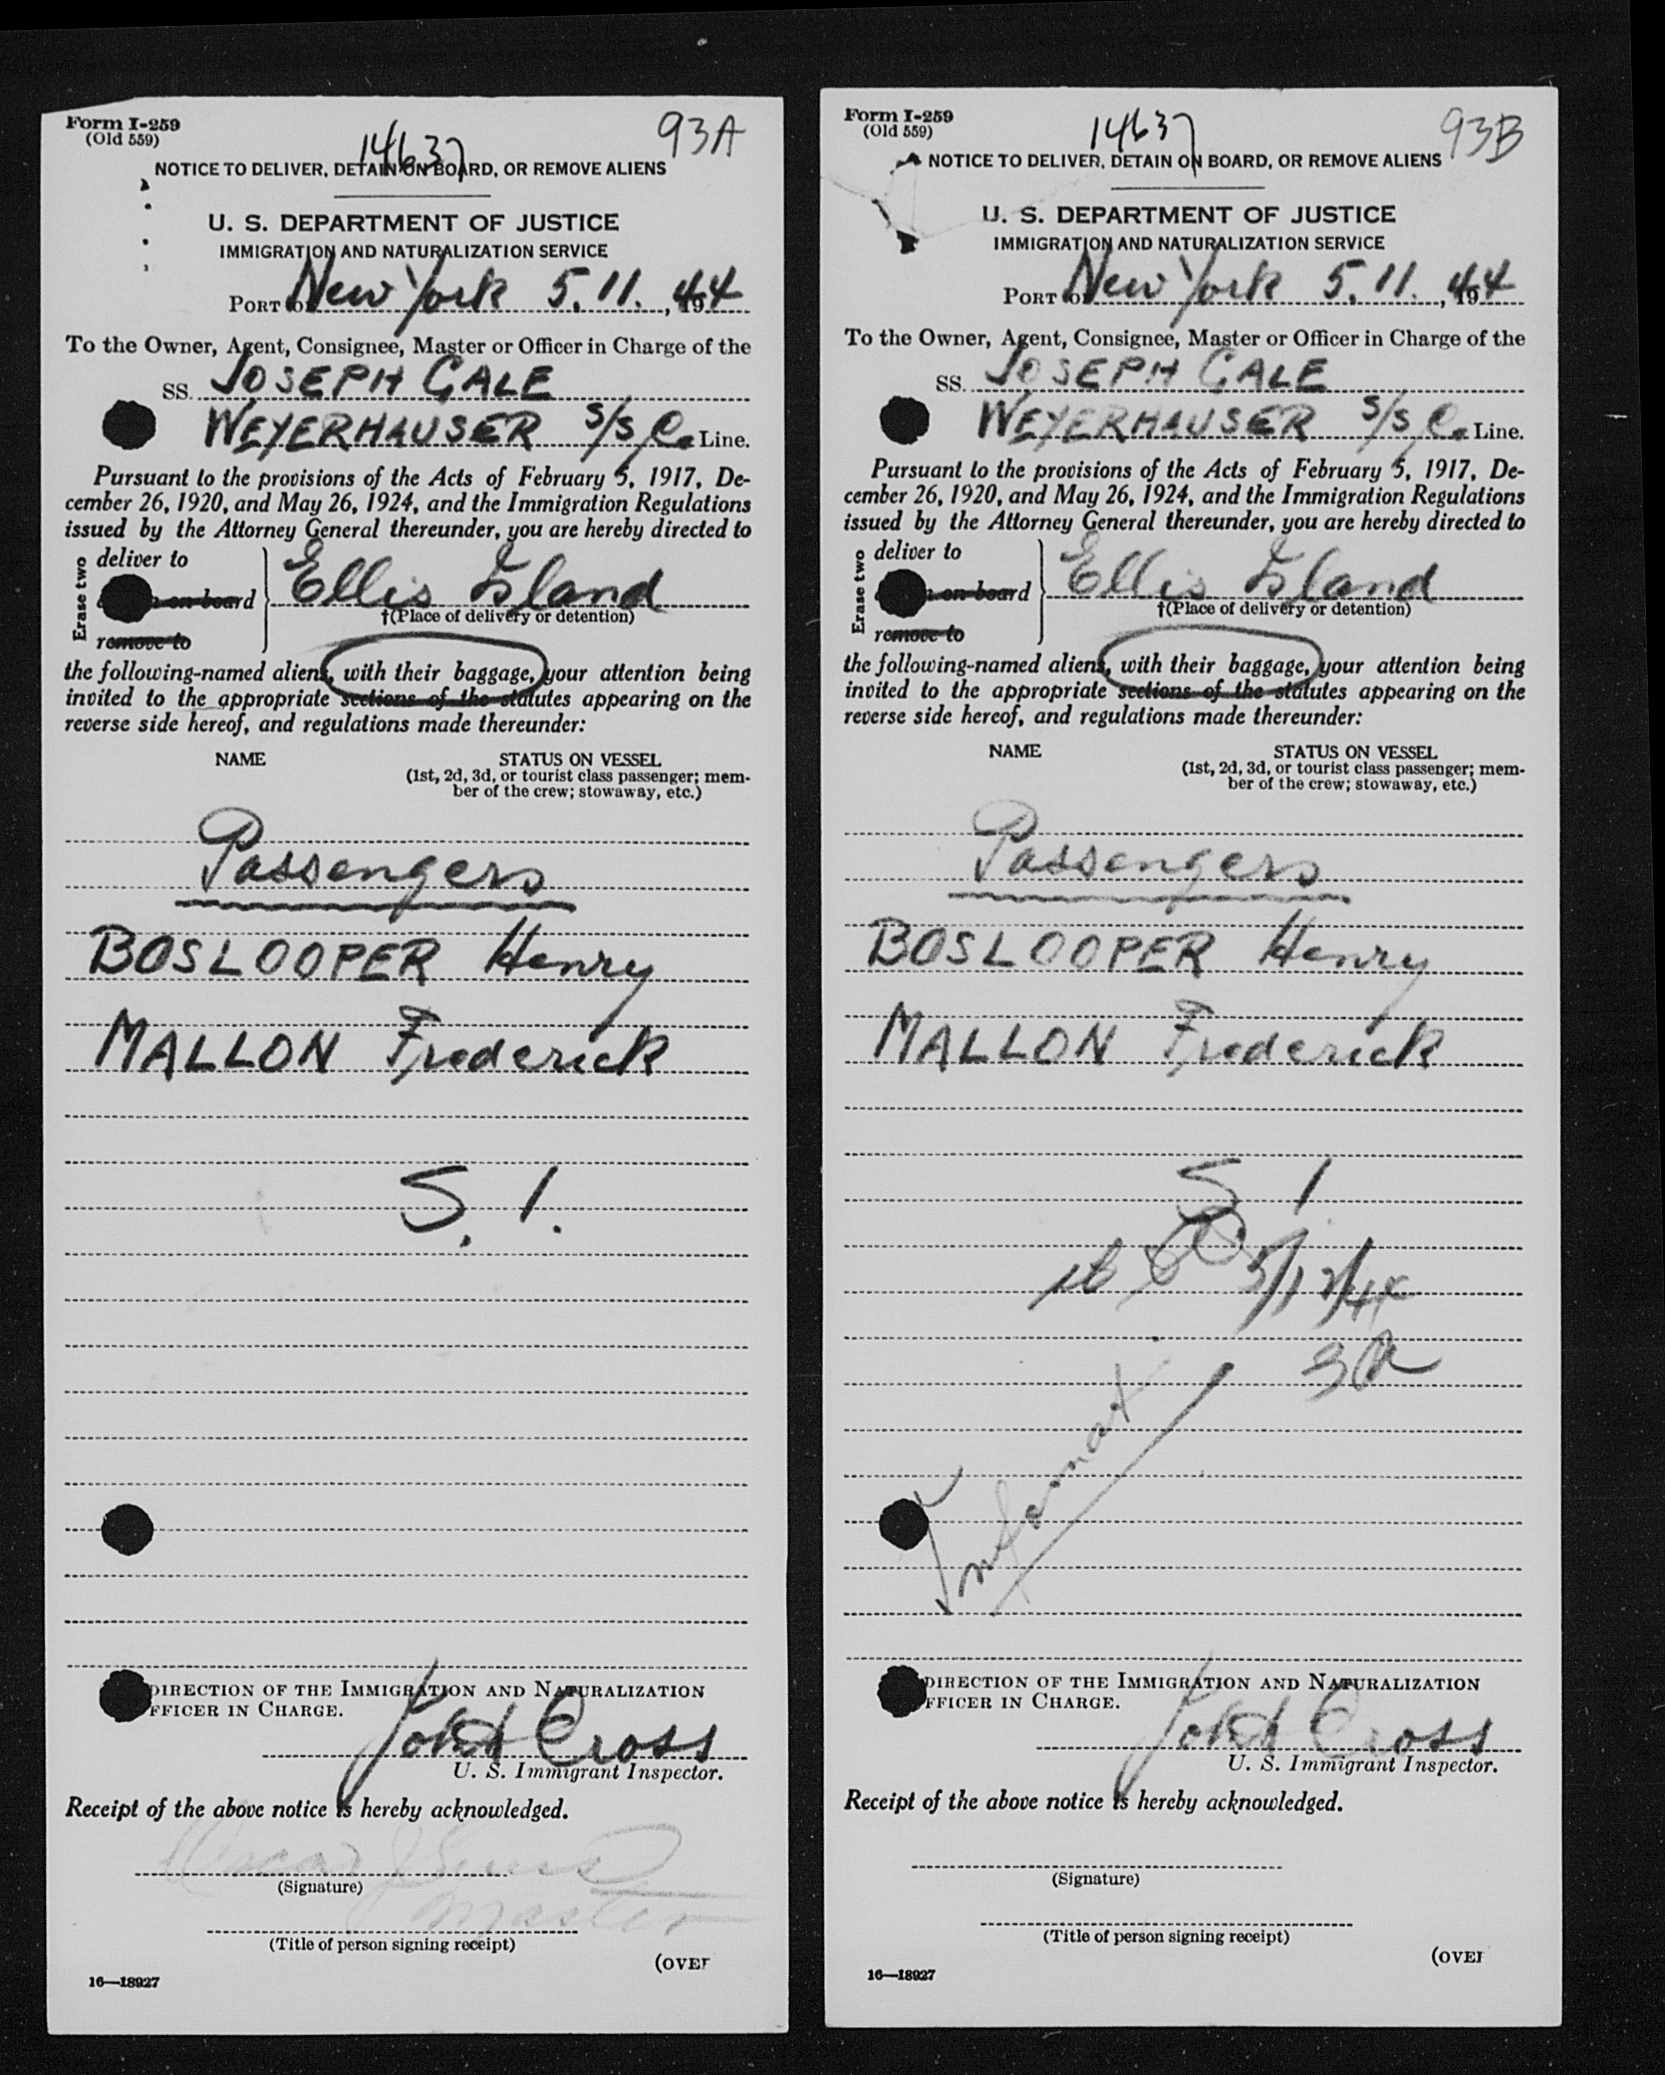 Form I-259
(Old 559)
14637
93A
NOTICE TO DELIVER, DETAIN ON BOARD, OR REMOVE ALIENS
U. S. DEPARTMENT OF JUSTICE
IMMIGRATION AND NATURALIZATION SERVICE
PORT of New York 5.11., 1944
To the Owner, Agent, Consignee, Master or Officer in Charge of the
SS. JOSEPH GALE
WEYERHAUSER S/S Co. Line.
Pursuant to the provisions of the Acts of February 5, 1917, De-
cember 26, 1920, and May 26, 1924, and the Immigration Regulations
issued by the Attorney General thereunder, you are hereby directed to
Erase two
deliver to
on board
remove to
Ellis Island
†(Place of delivery or detention)
the following-named aliens, with their baggage, your attention being
invited to the appropriate sections of the statutes appearing on the
reverse side hereof, and regulations made thereunder:
NAME
STATUS ON VESSEL
(1st, 2d, 3d, or tourist class passenger; mem-
ber of the crew; stowaway, etc.)
Passengers
BOSLOOPER Henry
MALLON Frederick
S. 1.
DIRECTION OF THE IMMIGRATION AND NATURALIZATION
FFICER IN CHARGE.
Cross
U. S. Immigrant Inspector.
Receipt of the above notice is hereby acknowledged.
(Signature)
Master
(Title of person signing receipt)
(OVER
16—18927
Form I-259
(Old 559)
14637
93B
NOTICE TO DELIVER, DETAIN ON BOARD, OR REMOVE ALIENS
U. S. DEPARTMENT OF JUSTICE
IMMIGRATION AND NATURALIZATION SERVICE
PORT of New York 5.11., 1944
To the Owner, Agent, Consignee, Master or Officer in Charge of the
SS. JOSEPH GALE
WEYERHAUSER S/S Co. Line.
Pursuant to the provisions of the Acts of February 5, 1917, De-
cember 26, 1920, and May 26, 1924, and the Immigration Regulations
issued by the Attorney General thereunder, you are hereby directed to
Erase two
deliver to
on board
remove to
Ellis Island
†(Place of delivery or detention)
the following-named aliens, with their baggage, your attention being
invited to the appropriate sections of the statutes appearing on the
reverse side hereof, and regulations made thereunder:
NAME
STATUS ON VESSEL
(1st, 2d, 3d, or tourist class passenger; mem-
ber of the crew; stowaway, etc.)
Passengers
BOSLOOPER Henry
MALLON Frederick
S 1
5/12/44
DIRECTION OF THE IMMIGRATION AND NATURALIZATION
FFICER IN CHARGE.
Cross
U. S. Immigrant Inspector.
Receipt of the above notice is hereby acknowledged.
(Signature)
(Title of person signing receipt)
(OVER
16—18927